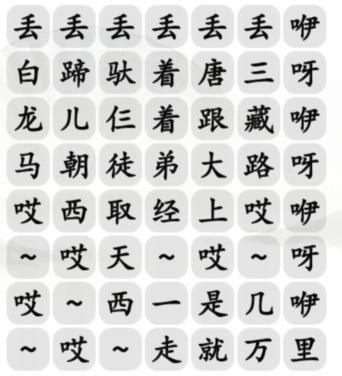 丢丢丢丢丢丢咿
白蹄驮着唐三呀
龙儿仨着跟藏咿
马朝徒弟大路呀
哎西取经上哎咿
~哎天~哎~呀
哎~西一是几咿
~哎~走就万里